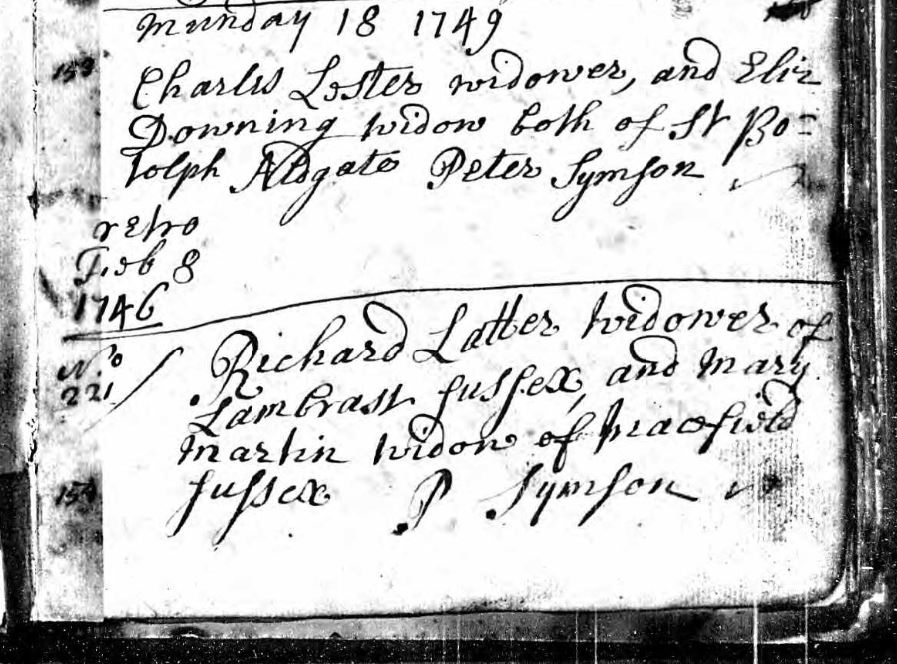 Munday 18 1749
153
Charles Lester widower, and Eliz
Downing widow both of St Bo=
tolph Aldgate Peter Symson
retro
Feb 8
1746
No
221
Richard Latter widower of
Lambrast Sussex, and Mary
Martin widow of Maefield
Sussex P Symson